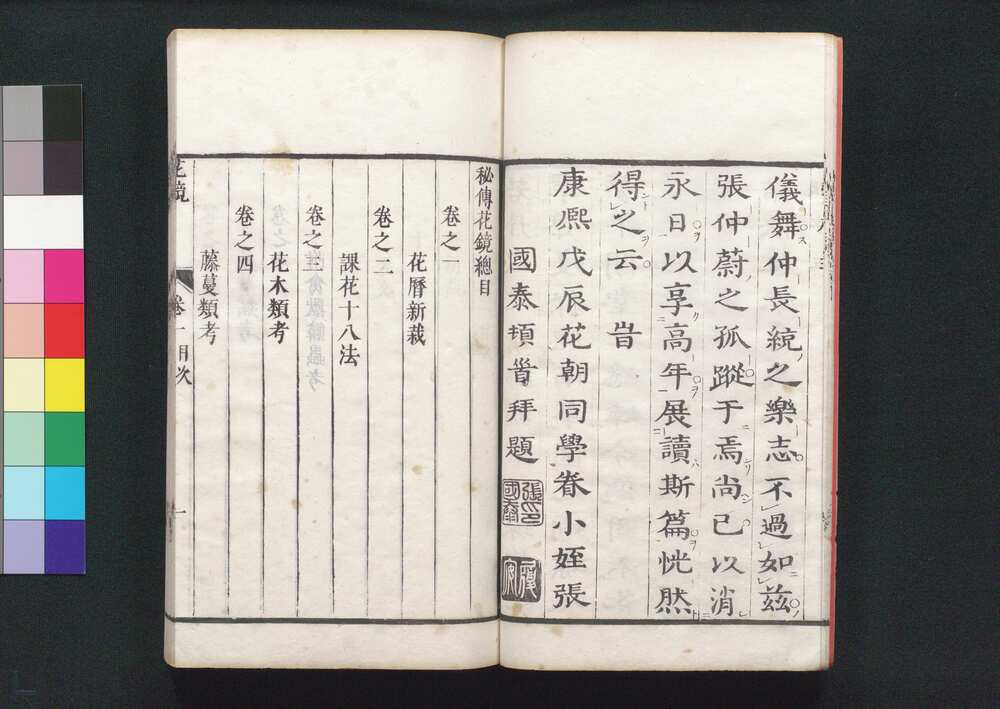 儀舞仲長統之樂志不過如茲
張仲蔚之孤蹤于焉尚已以消
永日以享高年展讀斯篇恍然
得之云 旹
康熙戊辰花朝同學眷小姪張
國泰頓首拜題
張國泰印
秘傳花鏡總目
卷之一
花曆新裁
卷之二
課花十八法
卷之三
花木類考
卷之四
藤蔓類考
花鏡 卷一目次 一